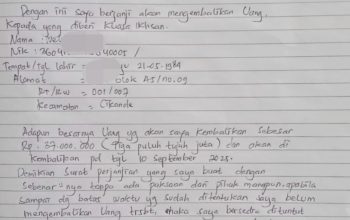 Dengan ini saya berjanji akan mengembalikan Uang,
Kepada yang diberi Kuasa Ikhsan.
Nama :
Nik : 3604 0040005 /
Tempat/tgl lahir : 21-05-1984
Alamat : blok A5/no.09
Rt/Rw = 001/007
Kecamatan = Cikande
Adapun besarnya Uang yg akan saya Kembalikan sebesar
Rp. 37.000.000 (Tiga puluh tujuh juta) dan akan di
Kembalikan pd tgl 10 September 2025.
Demikian Surat perjanjian yang saya buat dengan
Sebenar"nya tanpa ada paksaan dari pihak manapun. apabila
sampai dg batas waktu yg sudah ditentukan saya belum
mengembalikan Uang trsbt, maka saya bersedia dituntut